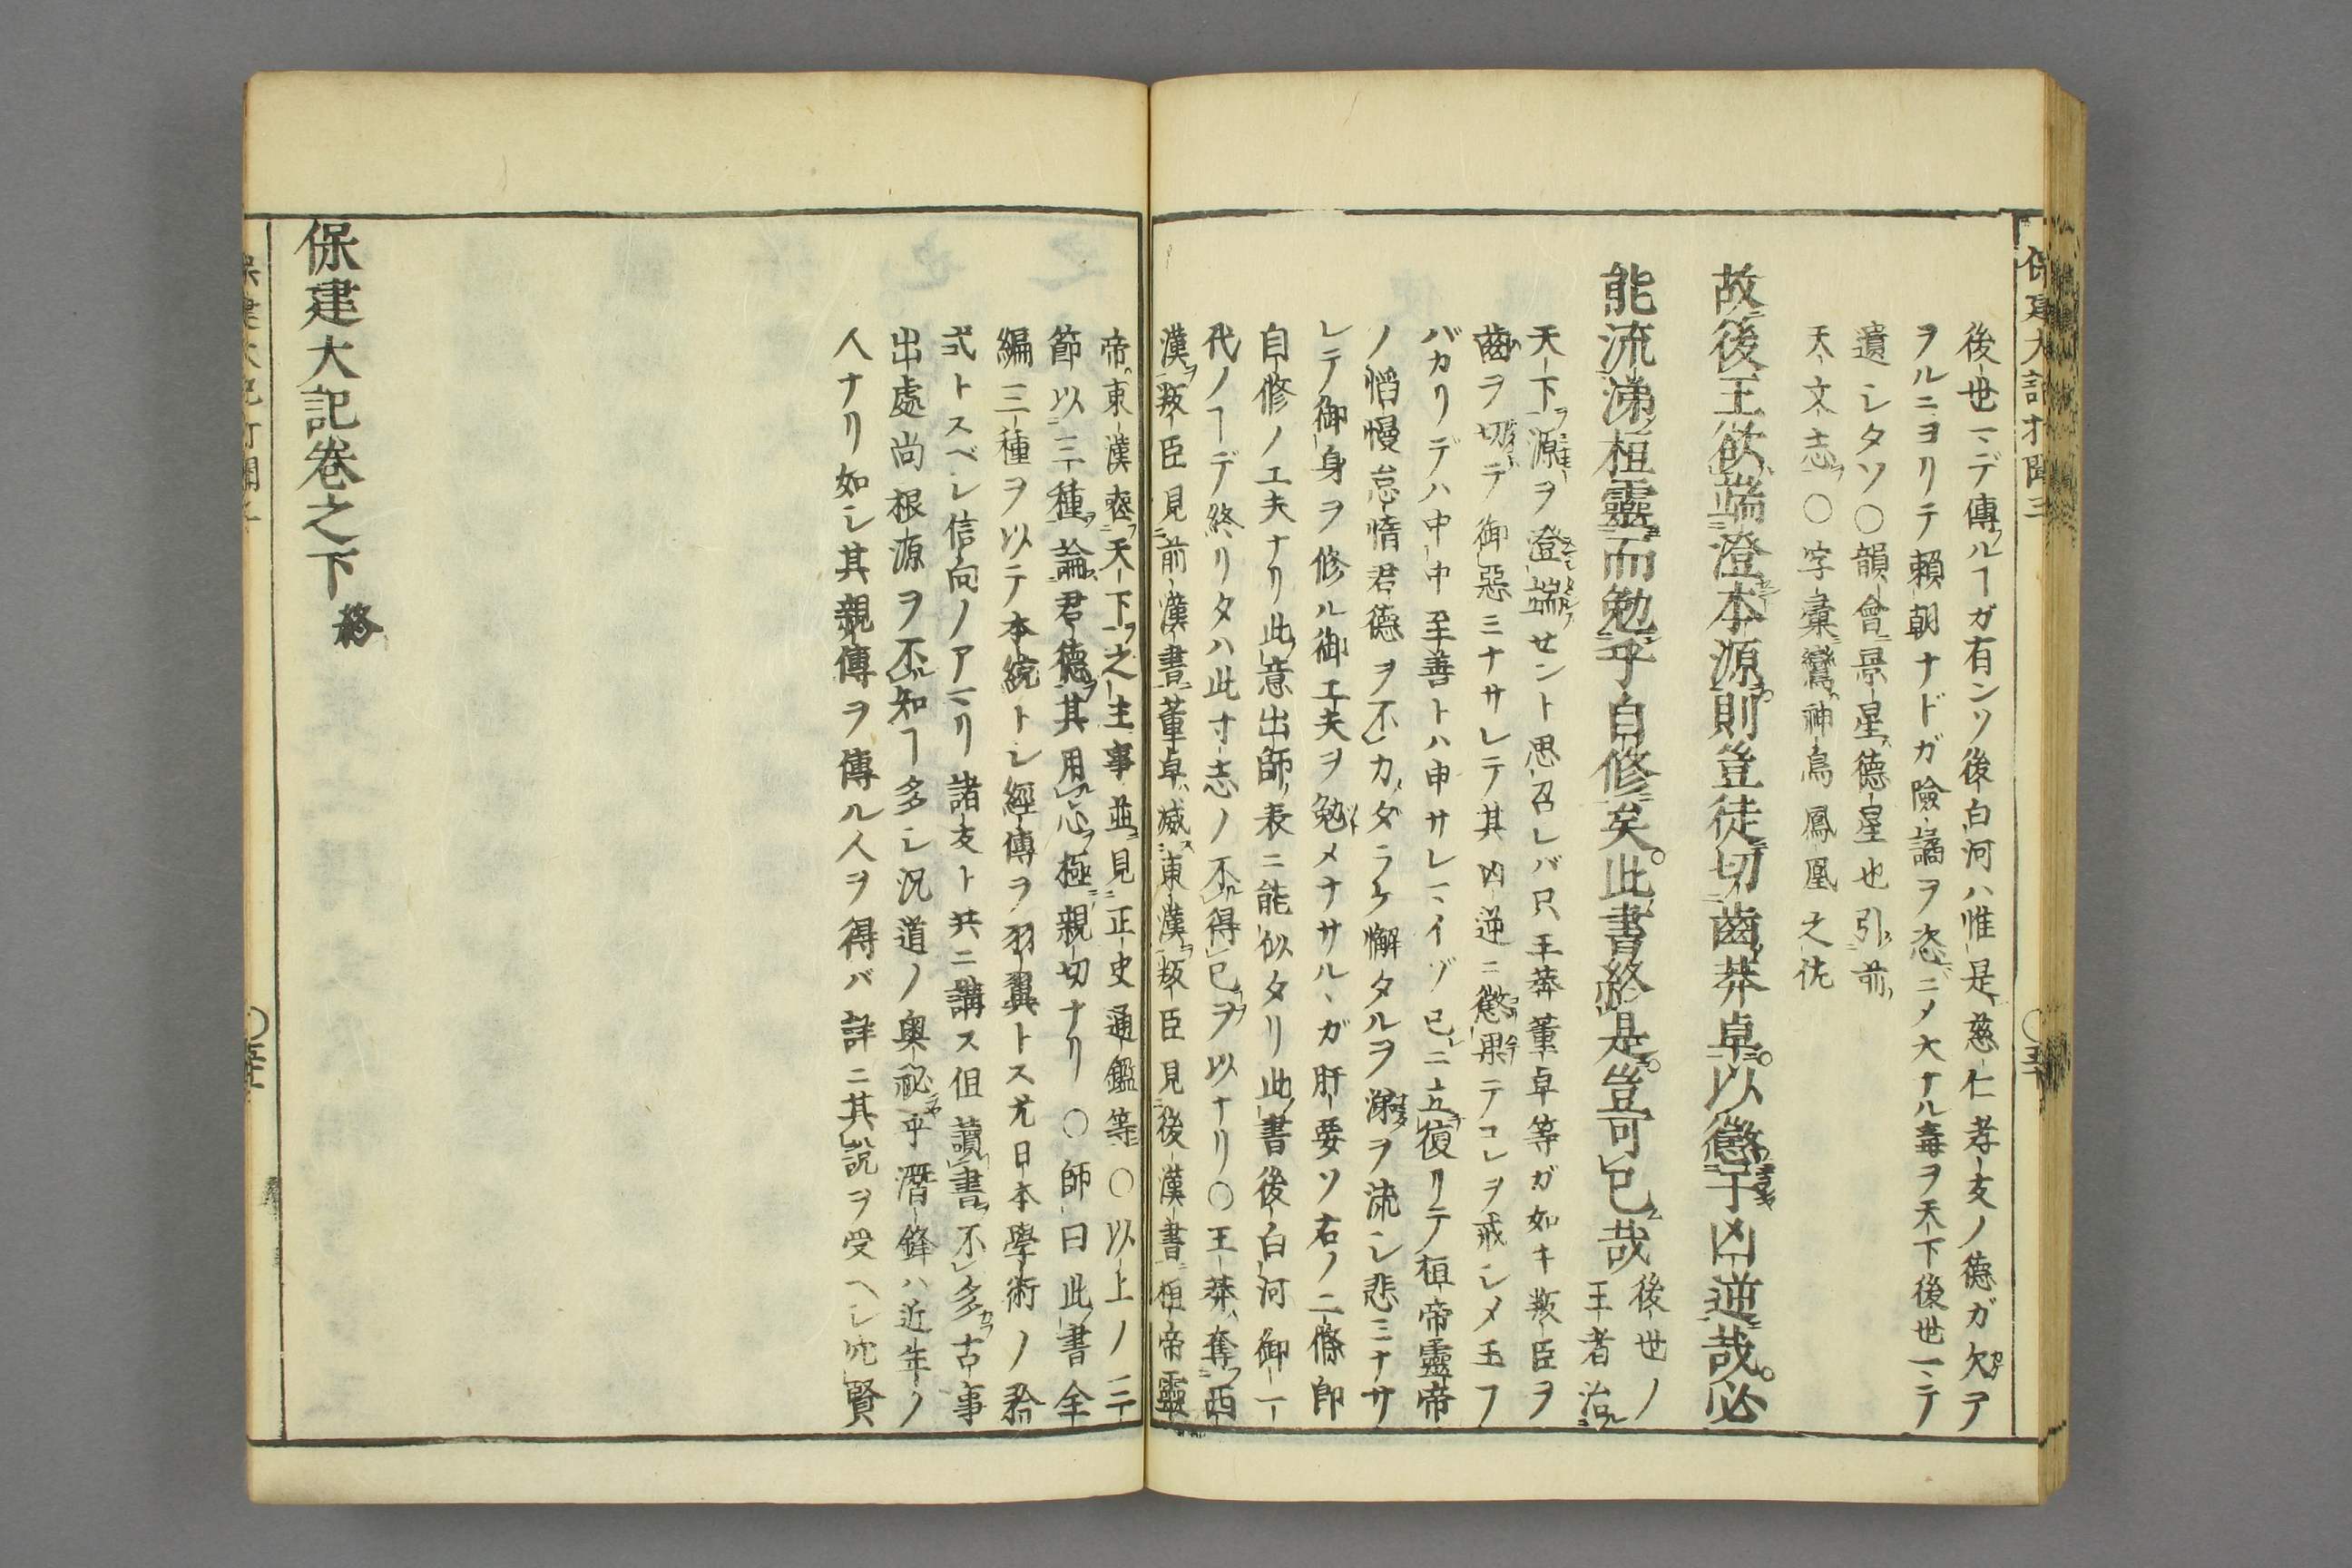 後世マデ傳ルヿガ有ンソ後白河ハ惟是慈仁孝友ノ德ガ欠ア
ヲルニヨリテ賴朝ナドガ險譎ヲ恣ニメ大ナル毒ヲ天下後世マデ
遺レタソ○韻會景星德星也引前
天文志○字彙鸞神鳥鳳凰之佐
故後王欲端澄本源則豈徒切齒莽卓以懲于凶逆哉必
能流涕桓靈而勉乎自修矣此書終是豈可已哉
後世ノ
王者治
天下源ヲ澄端セント思召レバ只王莽董卓等ガ如キ叛臣ヲ
齒ヲ切テ御惡ミナサレテ其凶逆ニ懲果テコレヲ戒シメ玉フ
バカリデハ中中至善トハ申サレマイゾ已ニ立復リテ桓帝靈帝
ノ慆慢怠惰君德ヲ不カダラケ懈タルヲ涕ヲ流シ悲ミナサ
レテ御身ヲ修ル御工夫ヲ勉メナサルヽガ肝要ソ右ノ二條即
自修ノ工夫ナリ此意出師表ニ能似タリ此書後白河御一
代ノヿデ終リタハ此寸志ノ不得已ヲ以ナリ○王莽奪西
漢叛臣見前漢書董卓威東漢叛臣見後漢書桓帝靈
帝東漢衰天下之主事並見正史通鑑等○以上ノ三
節以三種論君德其用心極親切ナリ○師曰此書全
編三種ヲ以テ本統トシ經傳ヲ羽翼トス尤日本學術ノ
式トスベシ信向ノアマリ諸友ト共ニ講ス但讀書不多古事
出處尚根源ヲ不知ヿ多シ況道ノ奧祕乎潛鋒ハ近年ノ
人ナリ如シ其親傳ヲ傳ル人ヲ得バ詳ニ其說ヲ受ヘシ賢
保建大記卷之下終